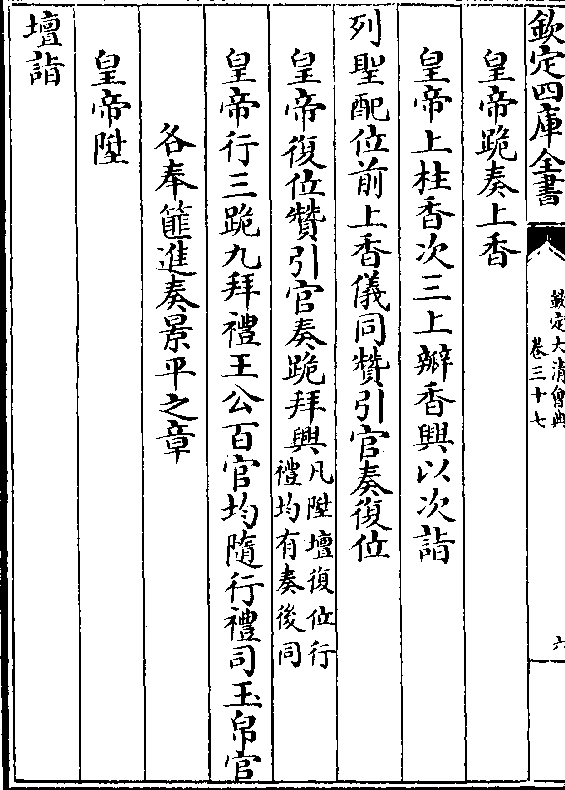 欽定四庫全書
欽定大清會典
卷三十七
六
皇帝跪奏上香
皇帝上柱香次三上瓣香興以次詣
列聖配位前上香儀同贊引官奏復位
皇帝復位贊引官奏跪拜興凡陞壇復位行
禮均有奏後同
皇帝行三跪九拜禮王公百官均隨行禮司玉帛官
各奉篚進奏景平之章
皇帝陞
壇詣